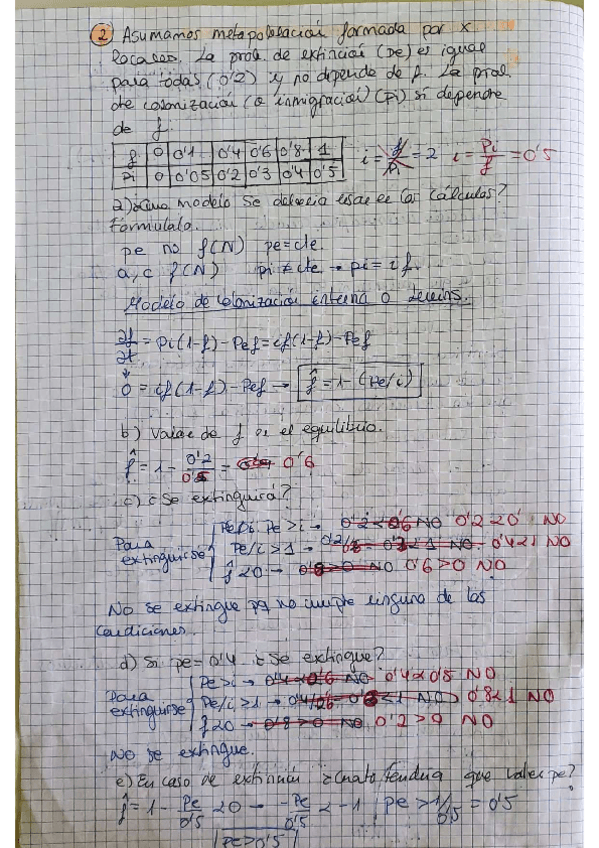 2 Asumamos metapoblación formada por x
locales. La prob. de extinción (pe) es igual
para todas (0'2) y no depende de f. La prob.
de colonización (o inmigración) (pi) sí depende
de f.
f 0 0'1 0'4 0'6 0'8 1
pi 0 0'05 0'2 0'3 0'4 0'5
i = f/pi = 2 i = pi/f = 0'5
a) ¿Qué modelo se debería usar en los cálculos?
Formúlalo.
pe no f(N) pe = cte.
a, c f(N) pi ≠ cte → pi = if.
Modelo de colonización interna o Levins.
∂f/∂t = pi(1-f) - Pef = if(1-f) - Pef
0 = if(1-f) - Pef → f̂ = 1 - (Pe/i)
b) Valor de f en el equilibrio.
f̂ = 1 - 0'2/0'5 = 0'6
c) ¿Se extinguirá?
Para extinguirse
Pe > i → NO 0'2 < 0' NO
Pe/i > 1 → NO 0'4 < 1 NO
f̂ < 0 → NO 0'6 > 0 NO
No se extingue pq no cumple ninguna de las
condiciones.
d) Si pe = 0'4 ¿Se extingue?
Para extinguirse
Pe > i → 0'4 < 0'6 NO 0'4 < 0'5 NO
Pe/i > 1 → < 1 NO 0'8 < 1 NO
f < 0 → 0'8 > 0 NO 0'2 > 0 NO
No se extingue.
e) En caso de extinción ¿cuánto tendría que valer pe?
f̂ = 1 - Pe/0'5 < 0 → -Pe/0'5 < -1 | pe > 1/0'5 = 0'5
pe > 0'5